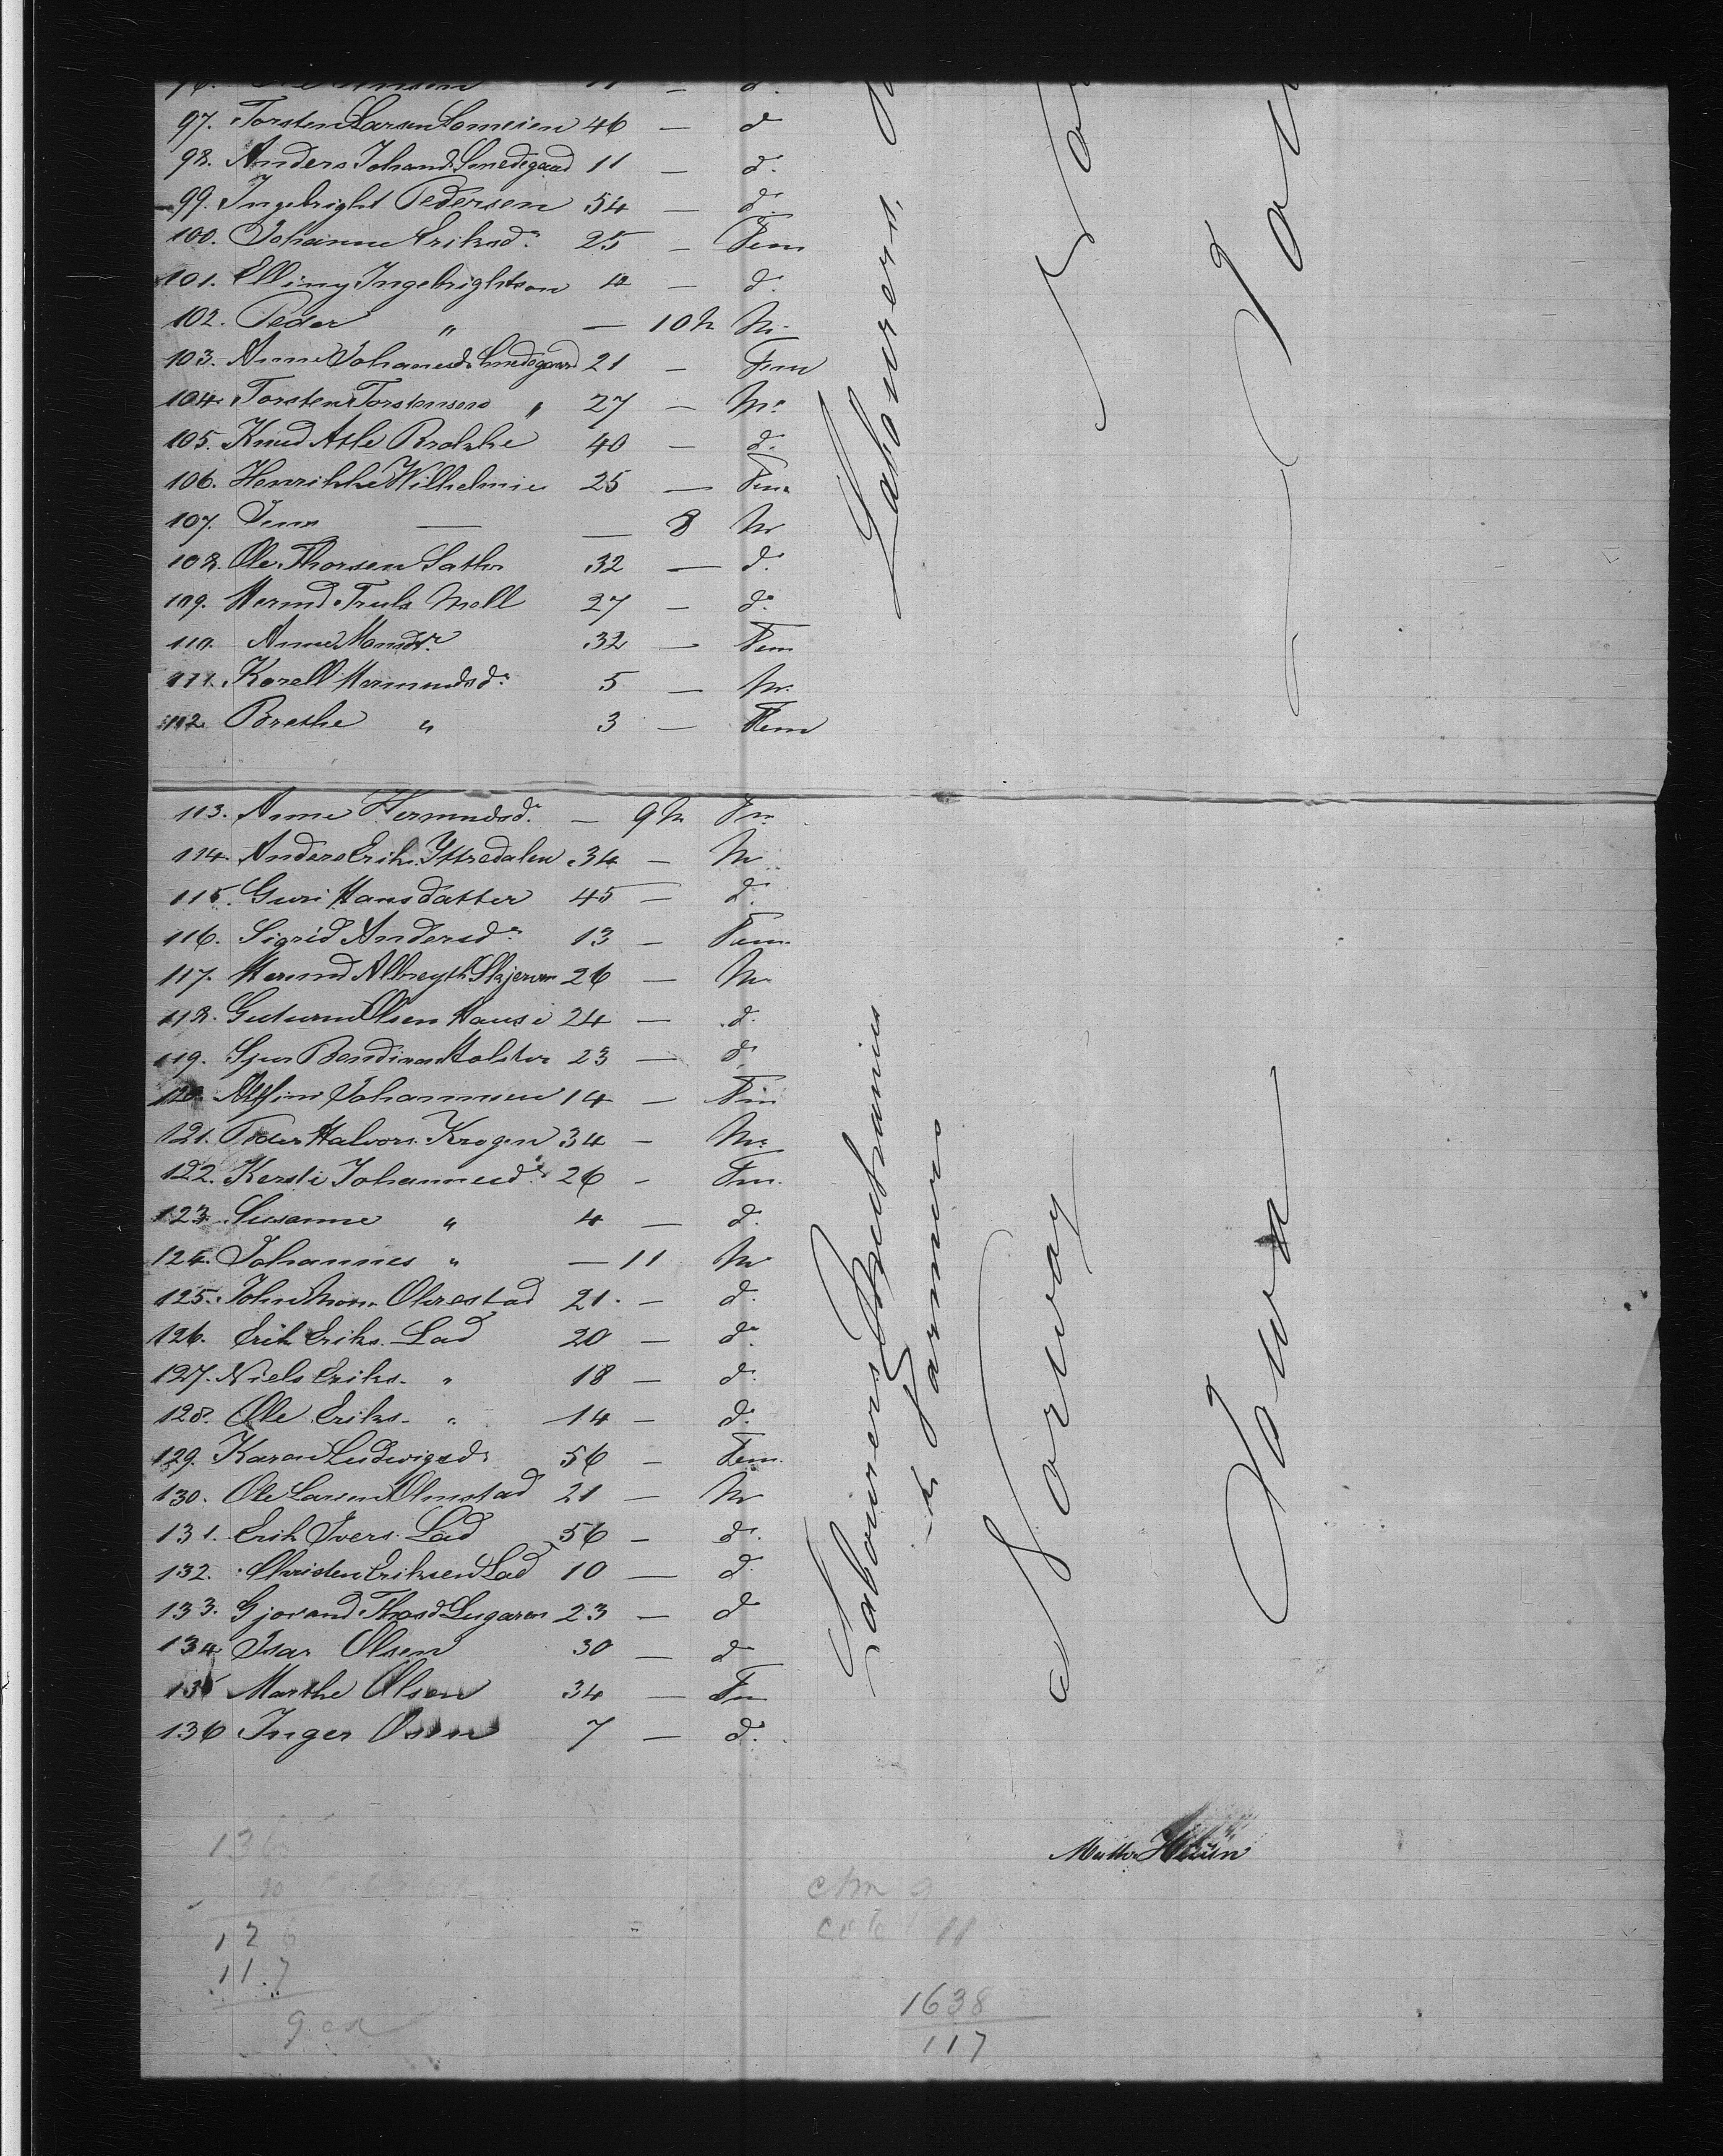 97. Torsten Larsen Lomeien 46 — d
98. Anders Johand. Smedegaard 11 — d.
99. Ingebright Pedersen 54 — d.
100. Johanne Eriksd. 25 — Fem
101. Elling Ingebrightson 4 — d.
102. Peder " — 10 M M.
103. Anne Johannesd. Smedsgaard 21 — Fem
104. Torsten Torstensen " 27 — M.
105. Knud Asle Brokke 40 — d.
106. Henrikke Wilhelmie 25 — Fem
107. Jens — — 8 M
108. Ole Thorsen Sathr 32 — d.
109. Hermd Truls Moll 27 — d.
110. Anne Monsdr. 32 — Fem
111. Korell Hermundsd. 5 — M.
112. Brethe " 3 — Fem
113. Anne Hermundsd. — 9 M Fm
114. Anders Erik. Yttredalen 34 — M
115. Guri Hansdatter 45 — d.
116. Sigrid Andersd. 13 — Fem.
117. Hermd Albregth Skjerven 26 — M
118. Guturm Olsen Hausi 24 — d.
119. Sjur Bendixen Holster 23 — d.
120. Johannsen 14 — Fm
121. Peder Halvors. Krogen 34 — M.
122. Kersti Johannesd. 26 — Fm.
123. Susanne " 4 — d.
124. Johannes " — 11 M
125. John Mons. Olrestad 21. — d.
126. Erik Eriks. Lad 20 — d.
127. Niels Eriks. " 18 — d.
128. Ole Eriks. " 14 — d.
129. Karen Ludvigsd. 56 — Fem.
130. Ole Larsen Olmstad 21 — M
131. Erik Ivers. Lad 56 — d.
132. Christen Eriksen Lad 10 — d.
133. Gjorand Thosd Lugaren 23 — d
134. Isar Olsen 30 — d
135 Marthe Olsen 34 — Fm
136 Inger Osen 7 — d.
Labourers,
Labourers Mechanics
& Farmers
Norway
Iowa
136
10
126
117
9
9
11
1638
117